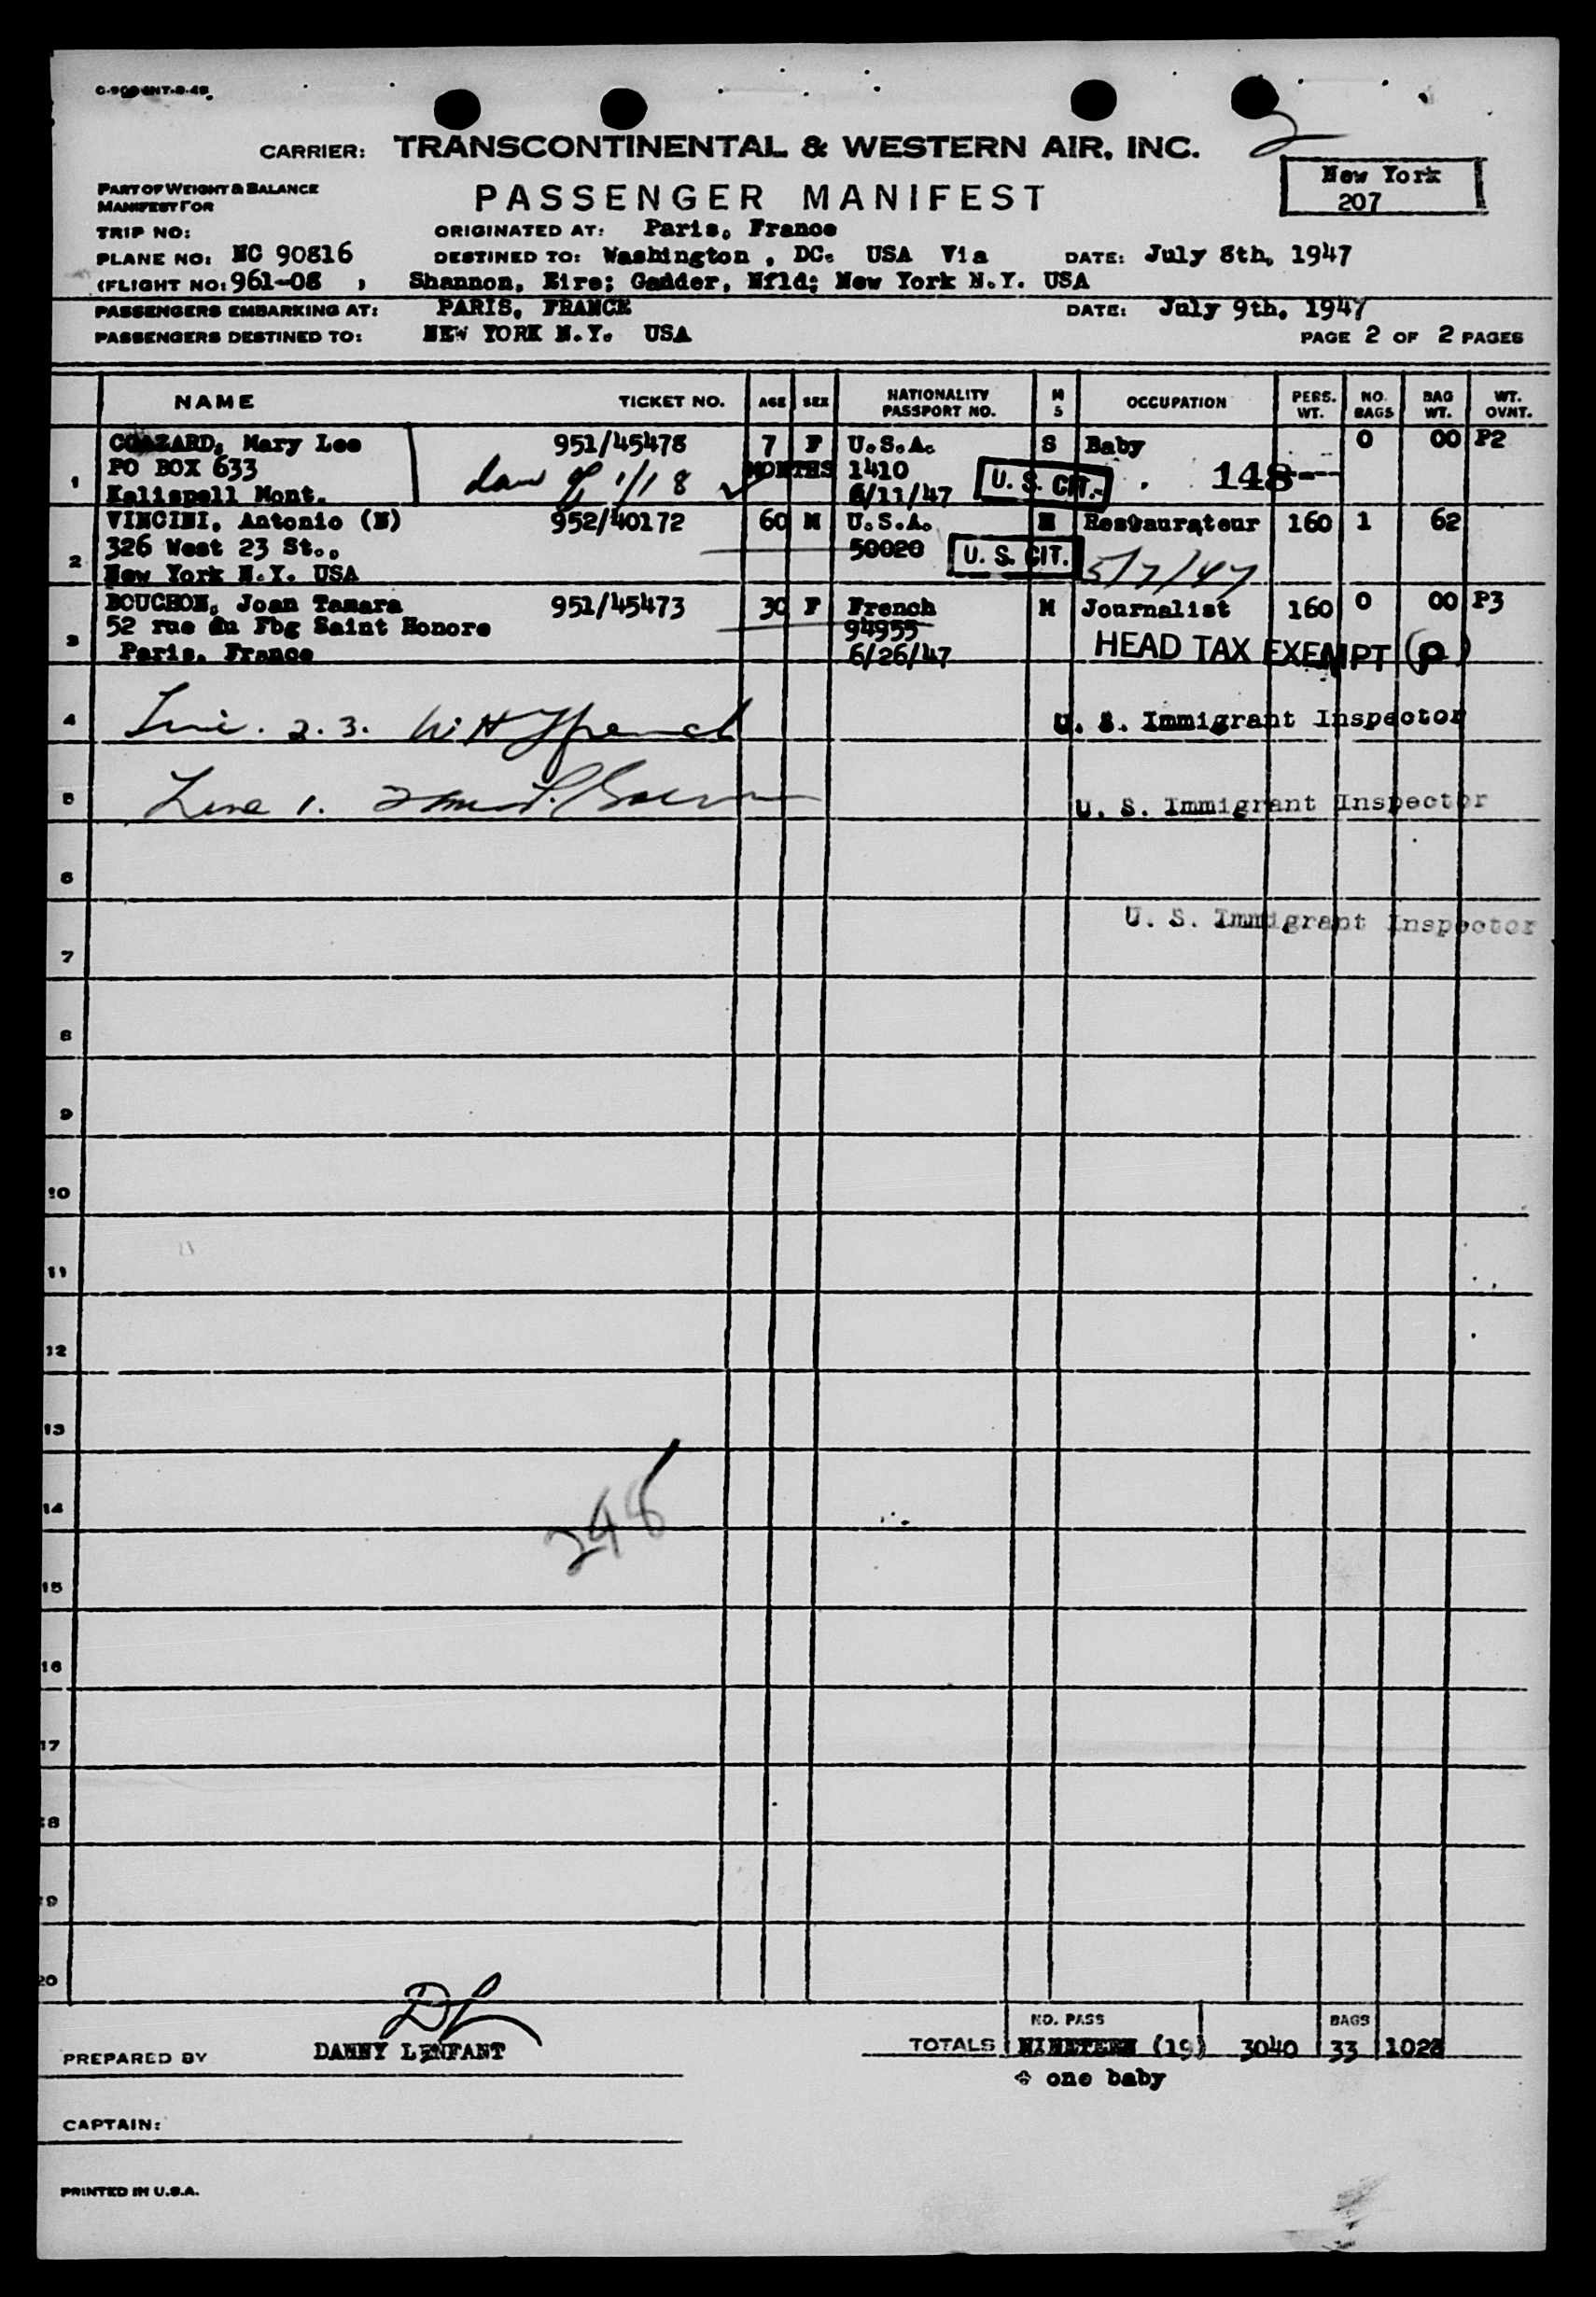 2
CARRIER: TRANSCONTINENTAL & WESTERN AIR, INC.
New York
207
PART OF WEIGHT & BALANCE
MANIFEST FOR
PASSENGER MANIFEST
TRIP NO:
ORIGINATED AT: Paris, France
PLANE NO: NC 90816
DESTINED TO: Washington , DC. USA Via
DATE: July 8th, 1947
(FLIGHT NO: 961-08 )
Shannon, Eire; Gadder, Nfld; New York N.Y. USA
PASSENGERS EMBARKING AT: PARIS, FRANCE
DATE: July 9th, 1947
PASSENGERS DESTINED TO: NEW YORK N.Y. USA
PAGE 2 OF 2 PAGES
NAME TICKET NO. AGE SEX NATIONALITY PASSPORT NO. M S OCCUPATION PERS. WT. NO. BAGS BAG WT. WT. OVNT.
1 Mary Lee 951/45478 7 F U.S.A. S Baby 0 00 P2
PO BOX 633 MONTHS 1410 148---
Kalispell Mont. 1/18 6/11/47 U. S. CIT.
2 VINCINI, Antonio (N) 952/40172 60 M U.S.A. M Restaurateur 160 1 62
326 West 23 St., 50020 U. S. CIT. 5/7/47
New York N.Y. USA
3 BOUCHON, Joan Tamara 951/45473 30 F French M Journalist 160 0 00 P3
52 rue du Fbg Saint Honore 94955
Paris, France 6/26/47 HEAD TAX EXEMPT (P)
4 Line 2.3. U. S. Immigrant Inspector
5 Line 1. U. S. Immigrant Inspector
6
U. S. Immigrant Inspector
7
8
9
10
11
12
13
14
248
15
16
17
18
19
20
DL
NO. PASS BAGS
PREPARED BY DANNY LENFANT
TOTALS NINETEEN (19) 3040 33
+ one baby
CAPTAIN:
PRINTED IN U.S.A.